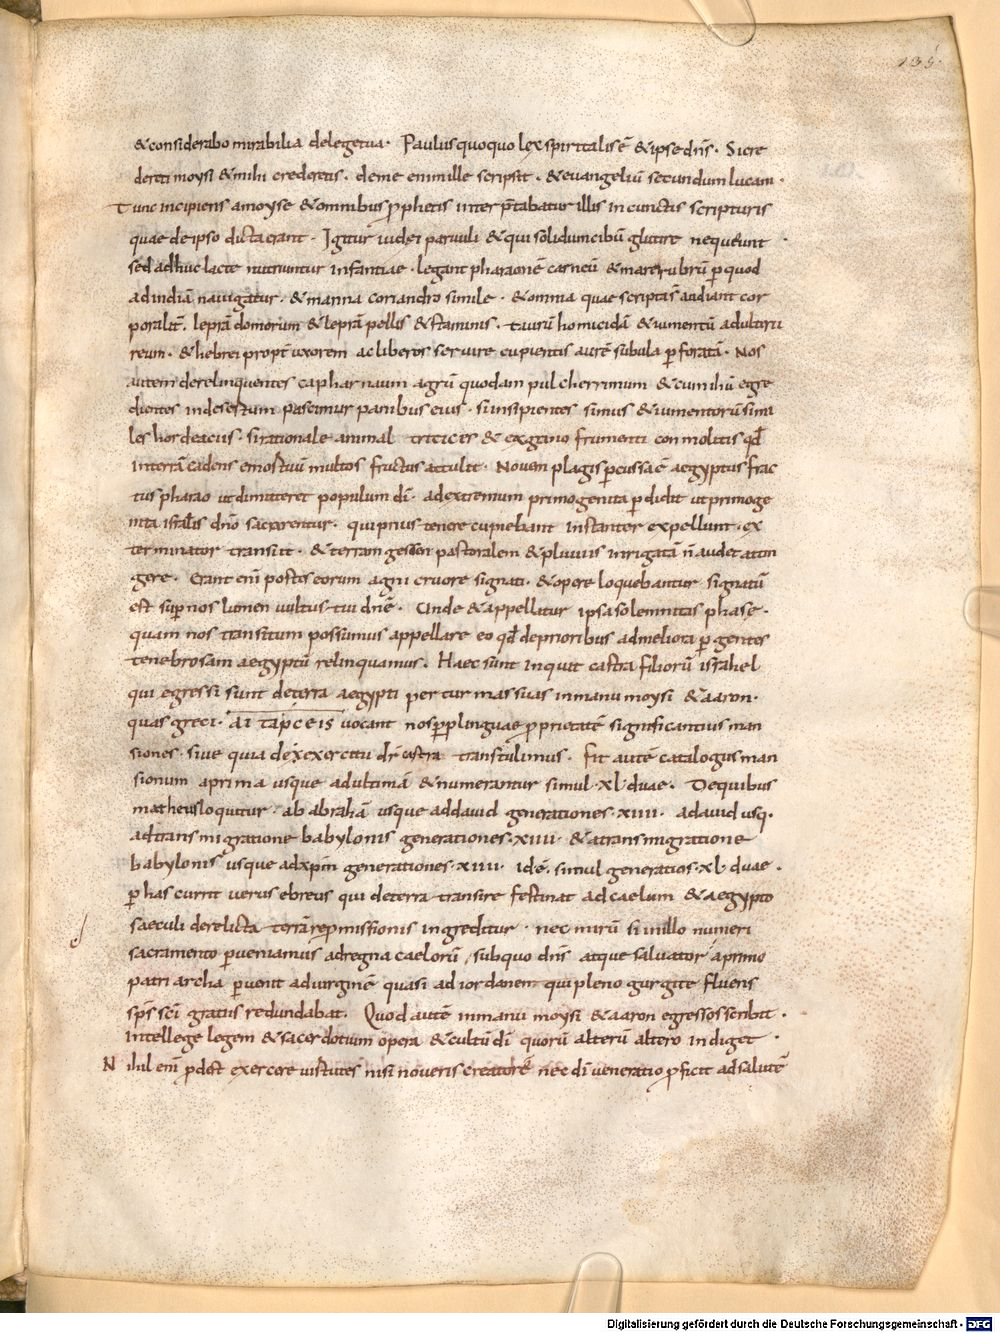 135
&considerabo mirabilia delegetua· Paulusquoquo lexspiritalisē &ipsedn̄s· Sicre
dereti moysi &mihi crederetis· deme enimille scripsit· &euangeliū secundumlucam·
Tunc incipiens amoyse &omnibus ꝓphetis inter p̄tabatur illis incunctis scripturis
quae deipso dictaerant· Igitur iudei paruuli &qui solidumcibū glutire nequeunt·
sed adhuc lacte nutriuntur infantiae· legant pharaonē carneū &marerubrū ꝑquod
adindiā nauigatur· &manna coriandro simile· &omnia quae scriptas̄ audiant cor
poralit̄· leprā domorum &leprā pellis &staminis· taurū homicidā &iumentū adulterii
reum· &hebrei propt̄ uxorem acliberos seruire cupientis aurē subula ꝑforatā· Nos
autem derelinquentes capharnaum agrū quodam pulcherrimum &cumihū egre
dientes indesertum pascimur panibus eius· siinsipientes simus &iumentorūsimi
les hordeaciis· sirationale animal triticeis & exgrano frumenti conmolitis qđ
interrā cadens emortuū multos fructus attulit· Nouem plagis ꝑcussa ē aegyptus frac
tus pharao utdimitteret populum dī· adextremum primogenita ꝑdidit utprimoge
nita isrłis dn̄o sacrarentur· quiprius tenere cupiebant instanter expellunt· ex
terminator transiit· &terram gessen pastoralem &pluuiis inrigatā n̄ audet attin
gere· Erant enī postes eorum agni cruore signati· &opere loquebantur signatū
est suꝑ nos lumen uultus tui dn̄e· Unde &appellatur ipsasolemnitas phase·
quam nos transitum possumus appellare eo qđ deprioribus admeliora ꝑgentes
tenebrosam aegyptū relinquamus· Haec sunt inquit castra filiorū israhel
qui egressi sunt deterra aegypti per turmassuas inmanu moysi &aaron·
quas greci· AITAPCEIS uocant nos ꝓplinguae ꝓprietatē significantius man
siones· siue quia dexexercitu dr̄ castra transtulimus· Fit autē catalogus man
sionum aprima usque adultimā &numerantur simul·xl·duae· Dequibus
matheusloquitur· ab abrahā usque addauid generationes·xiiii· adauid usq·
adtransmigratione babylonis generationes·xiiii· &atransmigratione
babylonis usque adxp̄m generationes·xiiii· idē· simul generatios·xl·duae·
ꝑhas currit uerus ebreus qui deterra transire festinat adcaelum &aegypto
saeculi derelicta terrā repmissionis ingreditur· nec mirū siinillo numeri
sacramento ꝑueniamus adregna caelorū, subquo dn̄s atque saluator aprimo
patriarcha ꝑuenit aduirginē quasi adiordanem quipleno gurgite fluens
sp̄s sc̄i gratiis redundabat· Quod autē inmanu moysi &aaron egressosscribit·
intellege legem &sacerdotium opera &cultū dī quorū alterū altero indiget·
Nihil enī ꝓdest exercere uirtutes nisi noueris creatorē nec dī ueneratio ꝓficit adsalutē
Digitalisierung gefördert durch die Deutsche Forschungsgemeinschaft - DFG